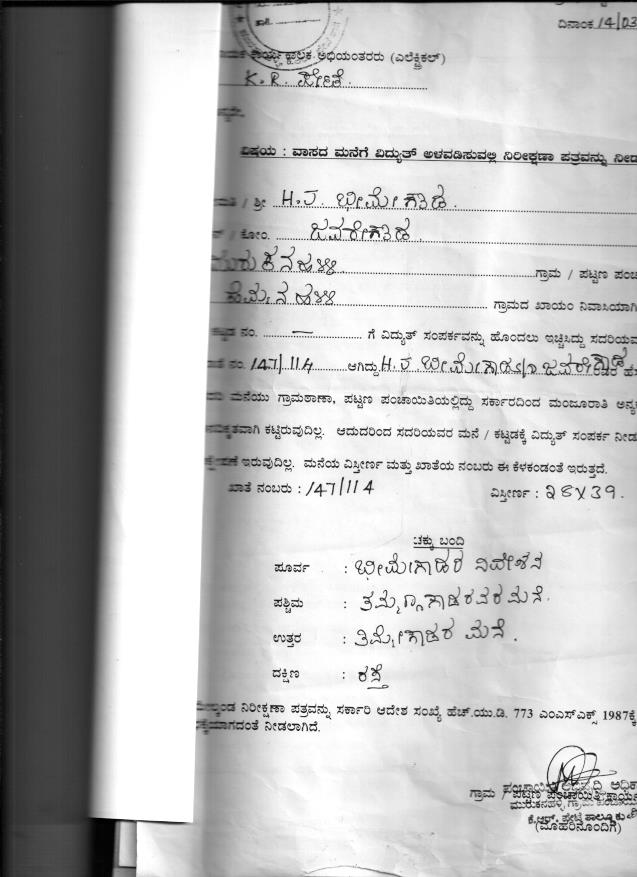 ದಿನಾಂಕ 14/03
ಕಾರ್ಯಪಾಲಕ ಅಭಿಯಂತರರು (ಎಲೆಕ್ಟ್ರಿಕಲ್)
K.R. ಪೇಟೆ
ವಿಷಯ : ವಾಸದ ಮನೆಗೆ ವಿದ್ಯುತ್ ಅಳವಡಿಸುವಲ್ಲಿ ನಿರೀಕ್ಷಣಾ ಪತ್ರವನ್ನು ನೀಡ
/ ಶ್ರೀ H.J. ಭೀಮೇಗೌಡ
/ ಕೋಂ. ಜವರೇಗೌಡ
ಮುರುಕನಹಳ್ಳಿ ಗ್ರಾಮ / ಪಟ್ಟಣ ಪಂಚಾ
ಹೆಮ್ಮನಹಳ್ಳಿ ಗ್ರಾಮದ ಖಾಯಂ ನಿವಾಸಿಯಾಗಿ
ಕಟ್ಟಡ ನಂ. — ಗೆ ವಿದ್ಯುತ್ ಸಂಪರ್ಕವನ್ನು ಹೊಂದಲು ಇಚ್ಚಿಸಿದ್ದು ಸದರಿಯವ
ನಂ. 147/114 ಆಗಿದ್ದು H.J. ಭೀಮೇಗೌಡ S/o ಜವರೇಗೌಡ
ಮನೆಯು ಗ್ರಾಮಠಾಣಾ, ಪಟ್ಟಣ ಪಂಚಾಯಿತಿಯಲ್ಲಿದ್ದು ಸರ್ಕಾರದಿಂದ ಮಂಜೂರಾತಿ
ಕಟ್ಟಿರುವುದಿಲ್ಲ. ಆದುದರಿಂದ ಸದರಿಯವರ ಮನೆ / ಕಟ್ಟಡಕ್ಕೆ ವಿದ್ಯುತ್ ಸಂಪರ್ಕ ನೀಡು
ಇರುವುದಿಲ್ಲ. ಮನೆಯ ವಿಸ್ತೀರ್ಣ ಮತ್ತು ಖಾತೆಯ ನಂಬರು ಈ ಕೆಳಕಂಡಂತೆ ಇರುತ್ತದೆ.
ಖಾತೆ ನಂಬರು : 147/114 ವಿಸ್ತೀರ್ಣ : 28X39.
ಚಕ್ಕು ಬಂದಿ
ಪೂರ್ವ : ಭೀಮೇಗೌಡರ ನಿವೇಶನ
ಪಶ್ಚಿಮ : ತಮ್ಮಣ್ಣಗೌಡರವರ ಮನೆ.
ಉತ್ತರ : ತಿಮ್ಮೇಗೌಡರ ಮನೆ.
ದಕ್ಷಿಣ : ರಸ್ತೆ
ನಿರೀಕ್ಷಣಾ ಪತ್ರವನ್ನು ಸರ್ಕಾರಿ ಆದೇಶ ಸಂಖ್ಯೆ ಹೆಚ್.ಯು.ಡಿ. 773 ಎಂಎನ್ಎಕ್ಸ್ 1987ಕ್ಕೆ
ನೀಡಲಾಗಿದೆ.
ಗ್ರಾಮ / ಪಟ್ಟಣ ಪಂಚಾಯಿತಿ
ಮುರುಕನಹಳ್ಳಿ ಗ್ರಾಮ
ಕೆ.ಆರ್. ಪೇಟೆ ತಾಲ್ಲೂಕು
(ಮೊಹರಿನೊಂದಿಗೆ)